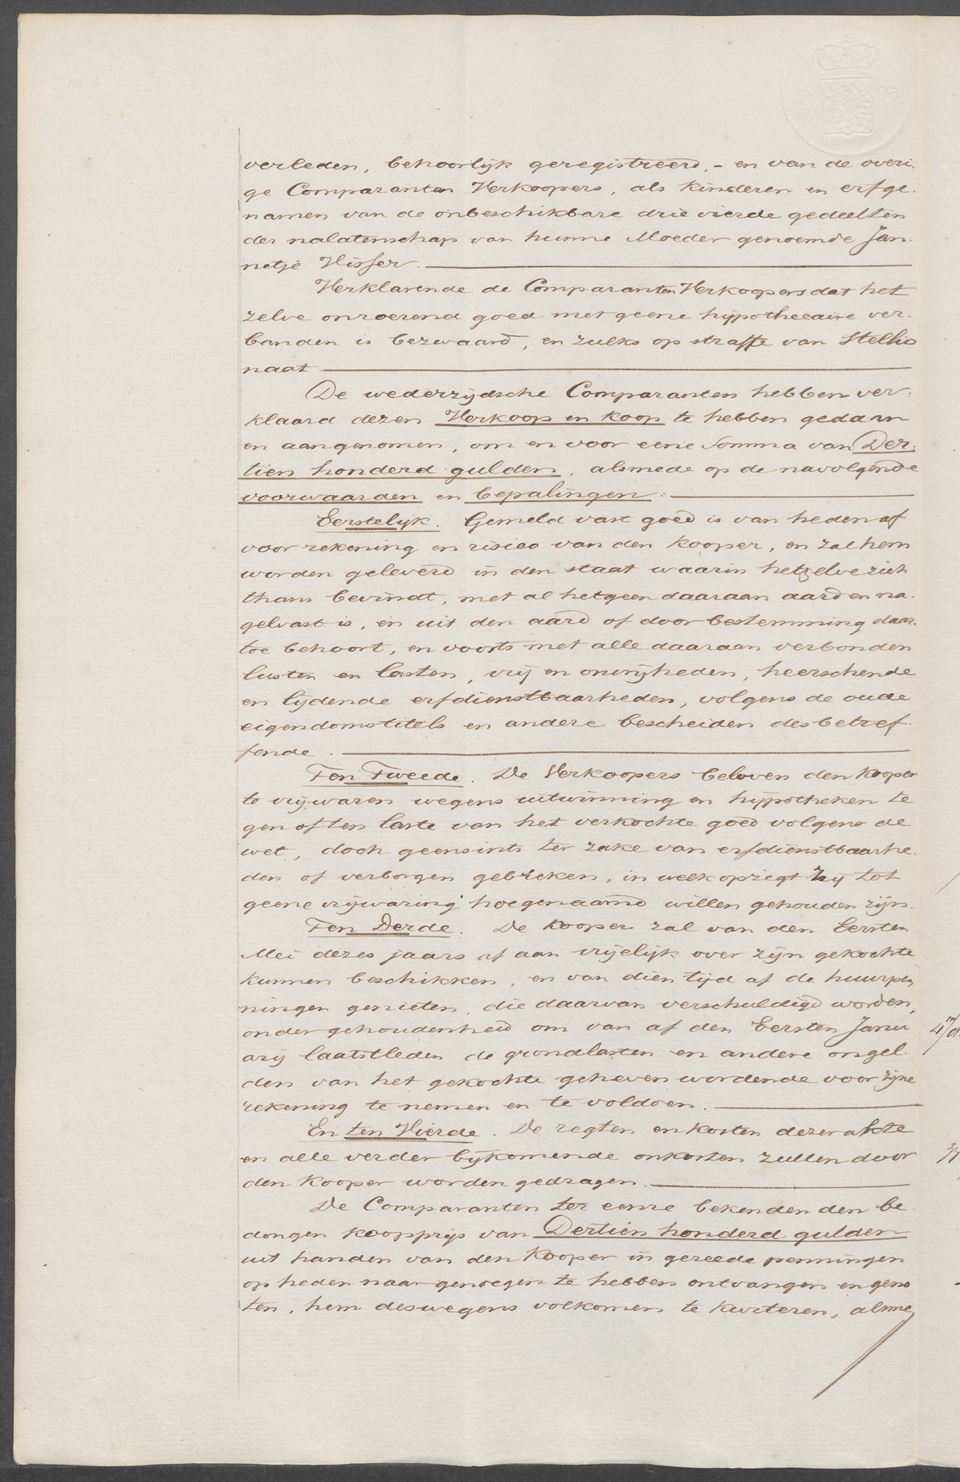 verleden, behoorlijk geregistreerd, - en van de overi-
ge Comparanten Verkoopers, als kinderen en erfge-
namen van de onbeschikbare drie vierde gedeelten
der nalatenschap van hunne Moeder genoemde Jan-
netje Visser.
Verklarende de Comparanten Verkoopers dat het
zelve onroerend goed met geene hypothecaire ver-
banden is bezwaard, en zulks op straffe van Stellio
naat
De wederzijdsche Comparanten hebben ver-
klaard dezen Verkoop en koop te hebben gedaan
en aangenomen, om en voor eene Somma van Der-
tien honderd gulden, alsmede op de navolgende
voorwaarden en bepalingen:
Eerstelijk. Gemeld vast goed is van heden af
voor rekening en risico van den kooper, en zal hem
worden geleverd in den staat waarin hetzelve zich
thans bevindt, met al hetgeen daaraan aard en na-
gelvast is, en uit den aard of door bestemming daar-
toe behoort, en voorts met alle daaraan verbonden
lusten en lasten, vrij en onvrijheden, heerschende
en lijdende erfdienstbaarheden, volgens de oude
eigendomstitels en andere bescheiden desbetref-
fende.
Ten Tweede. De Verkoopers beloven den Kooper
te vrijwaren wegens uitwinning en hypotheken te
gen of ten laste van het verkochte goed volgens de
wet, doch geensints ter zake van erfdienstbaarhe-
den of verborgen gebreken, in welk opzigt zij tot
geene vrijwaring hoegenaamd willen gehouden zijn.
Ten Derde. De Kooper zal van den Eersten
Mei dezes jaars af aan vrijelijk over zijn gekochte
kunnen beschikken, en van dien tijd af de huurpen
ningen genieten, die daarvan verschuldigd worden,
onder gehoudenheid om van af den Eersten Janu
arij laatstleden de grondlasten en andere ongel-
den van het gekochte geheven wordende voor zijne
rekening te nemen en te voldoen.
En ten Vierde. De regten en kosten dezer akte
en alle verder bijkomende onkosten zullen door
den Kooper worden gedragen.
De Comparanten ter eenre bekenden den be-
dongen koopprijs van Dertien honderd gulden
uit handen van den Kooper in gereede penningen
op heden naar genoegen te hebben ontvangen en geno
ten, hem deswegens volkomen te kwiteren, alsme